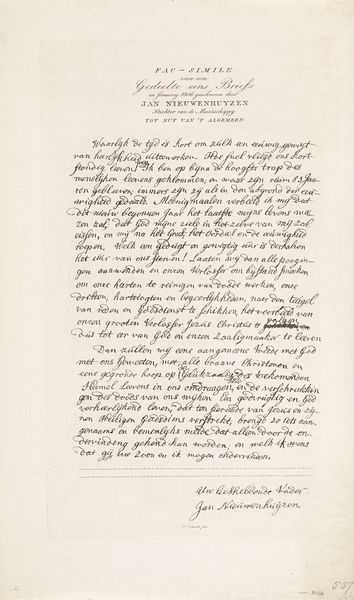 FAC-SIMILE
van een
Gedeelte eens Briefs
in January 1806 geschreven door
JAN NIEUWENHUYZEN
Stichter van de Maatschappij
TOT NUT VAN 'T ALGEMEEN
Waarlijk de tijd is kort om zulk een eeuwig gewigt
van heerlijkheid uittewerken. Hoe snel vliegt ons kort
stondig leven! Ik ben op bijna de hoogste trap des
menschlijken levens geklommen, en waar zijn ruim 83 Jaa-
ren gebleven; immers zijn zij als in den afgrond der eeu-
wigheid gedaald. Menigmaalen verbeeld ik mij dat
dit nieuw begonnen Jaar het laatste mijns levens we-
zen zal, dat God mijne ziele in het zelve van mij zal
eischen, en mij na het Graf, het oordeel en de eeuwigheid
roepen. Welk een gedugt en gewigtig uur is derhalven
het uur van ons sterven! Laaten wij dan alle poogin-
gen aanwenden en onzen Verlosser om bijstand smeeken
om onze harten te reinigen van doode werken, onze
driften, hartstogten en begeerlijkheden, naar den teugel
van reden en Godsdienst te schikken, het voorbeeld van
onzen grooten Verlosser Jezus Christus te volgen
dus tot eer van God en onzen Zaaligmaaker te leeven.
Dan zullen wij eene aangename vrede met God
met ons Geweeten, met alle braave Christenen en
eene gegronde hoop op de Gelukzaligheid des toekomenden
Hemel Levens in ons omdraagen, en de verschrikkin
gen des doods van ons wijken. Een godvrugtig en God
verheerlijkend leven, dat ten sieraad van Jezus en zij-
nen Heiligen Godsdienst verstrekt, brengt zo iets aan-
genaams en beminlijks mede, dat alleen door de on-
dervinding gekend kan worden, en welk ik wensch
dat gij lieve Zoon en ik mogen ondervinden.
Uw liefhebbende Vader
Jan Nieuwenhuijzen